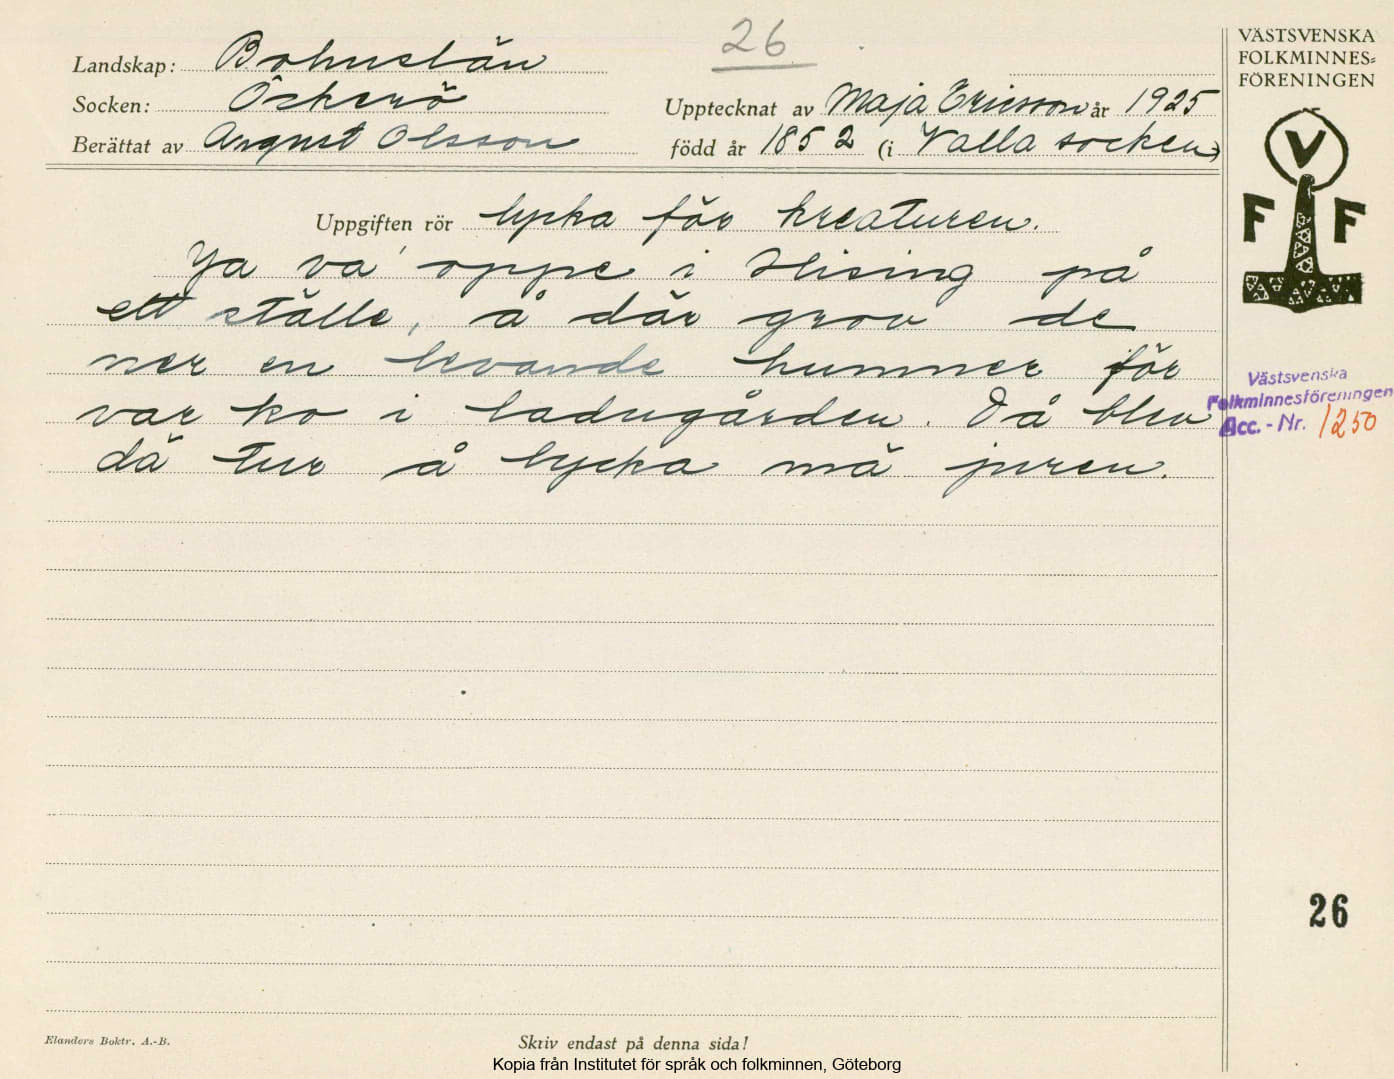 26
VÄSTSVENSKA
FOLKMINNES=
FÖRENINGEN
Landskap: Bohuslän
Socken: Öckerö
Upptecknat av Maja Ericsson år 1925
Berättat av August Olsson
född år 1852 (i Valla socken)
V
F F
Uppgiften rör lycka för kreaturen.
Ja va' oppe i Hising på
ett ställe, å där grov de
ner en levande hummer för
var ko i ladugården. Då blev
dä tur å lycka mä juren.
Västsvenska
Folkminnesföreningen
Acc. - Nr. 1250
26
Elanders Boktr. A.-B.
Skriv endast på denna sida!
Kopia från Institutet för språk och folkminnen, Göteborg